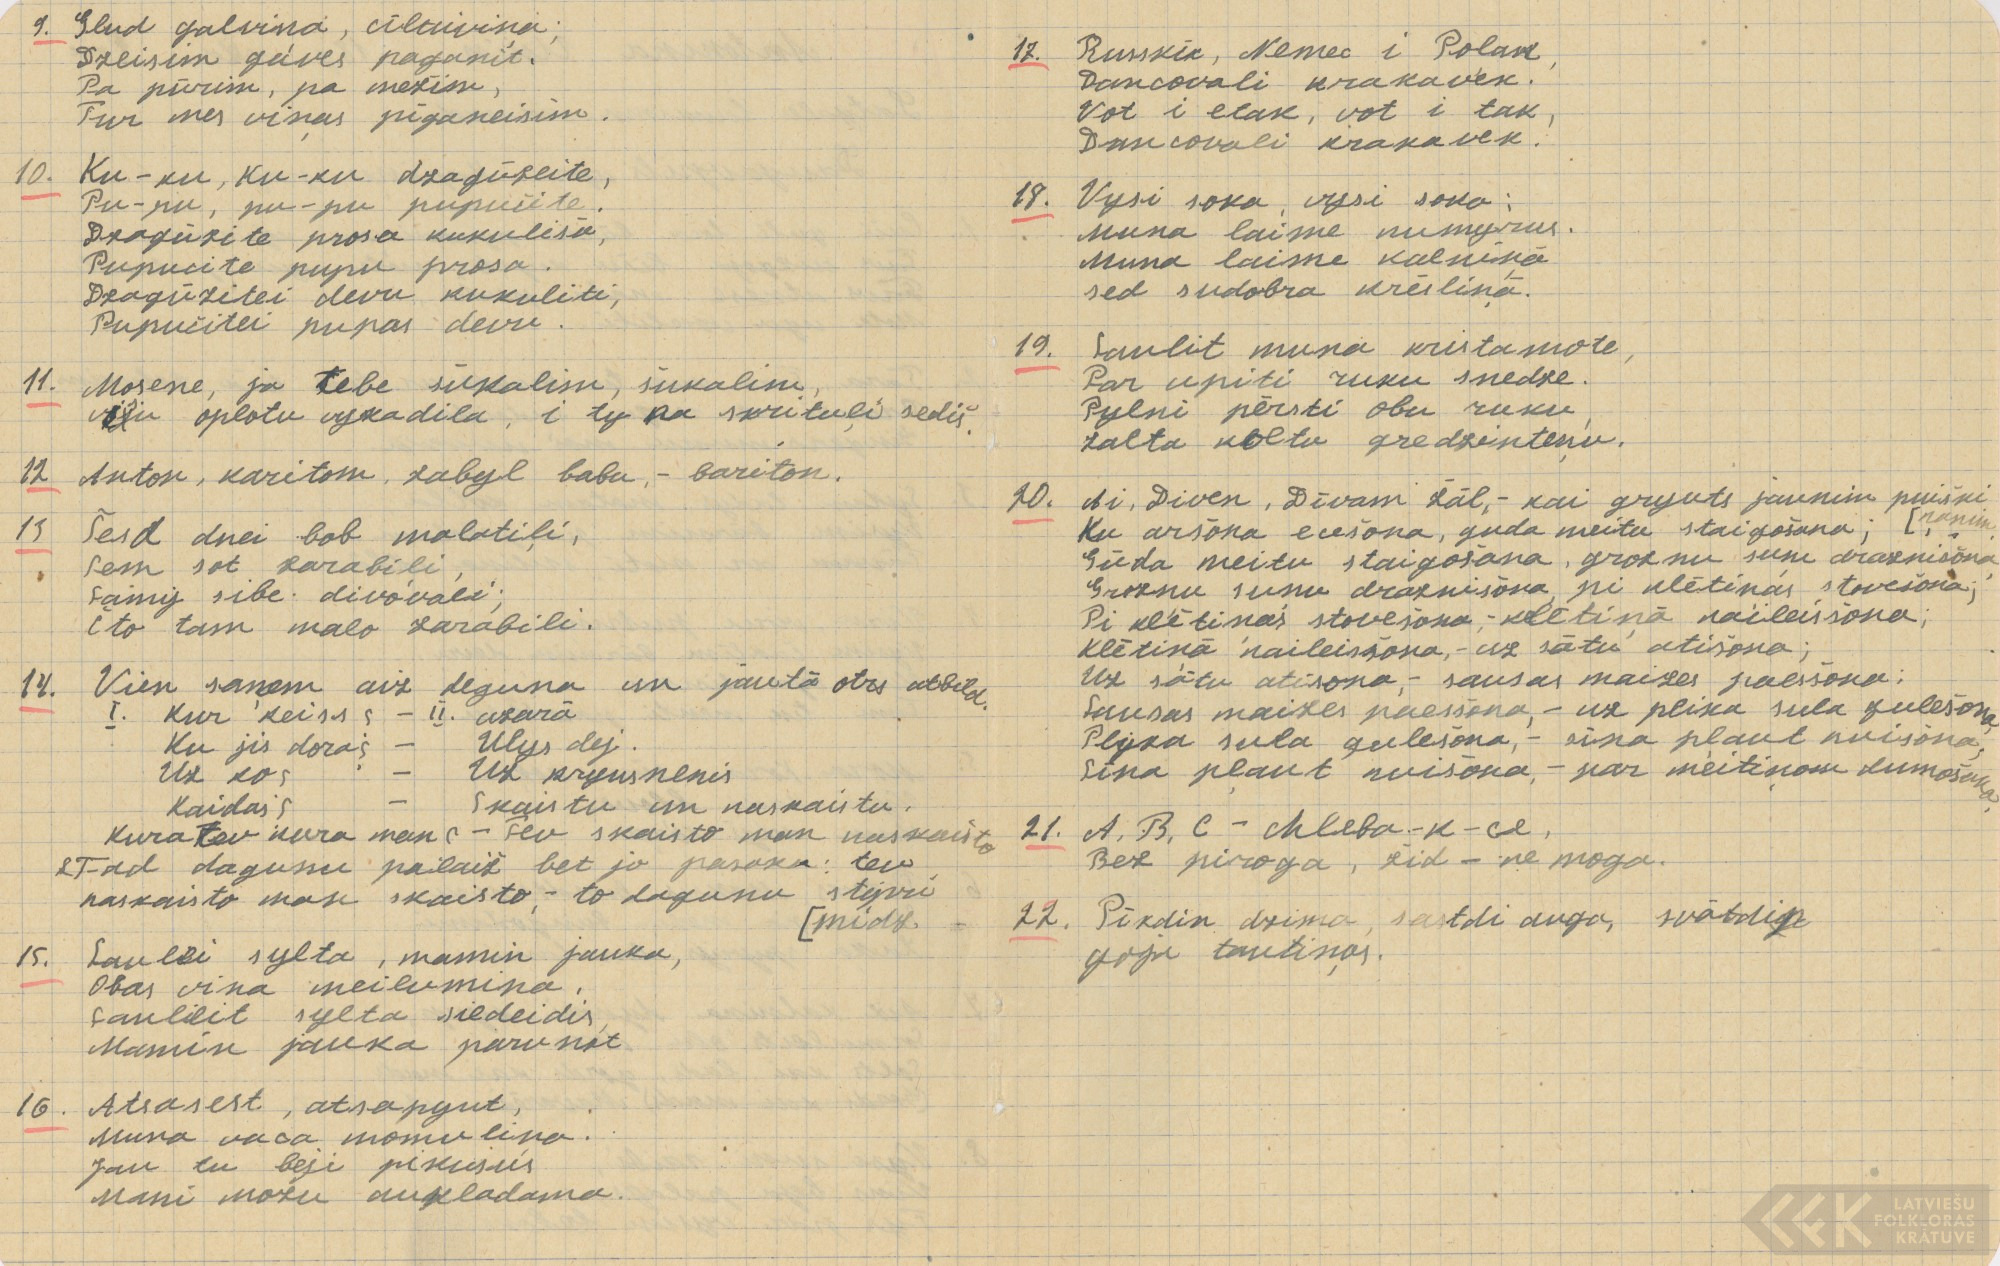 9. Glud galviņa, cīltiviņa;
Dzeisim gūves paganīt.
Pa pūrim, pa mežim,
Tur mes viņas pīganeisim.
10. Ku-ku, ku-ku dzagūzeite,
Pu-pu, pu-pu pupučite.
Dzagūzite prosa kukuliša,
Pupucite pupu prosa.
Dzagūzitei devu kukuliti,
Pupučitei pupas devu.
11. Mosene, ja tebe šukalim, šukalim,
oplotu vyzadila, i ty na skrituļi sediš.
12 Anton, karitom, zabyl babu, - bariton.
13 Šesd dnei bob molotiļi,
Sem sot zarabili,
Samy sibe divóvali;
Čto tam malo zarabili.
14. Vien saņem aiz deguna un jautā otrs atbild.
I. Kur keiss? - II. azarā
Ku jis dora? - Ulys dej.
Uz ko? - Uz kryusnenis
Kaidas? - Skaistu un naskaistu.
Kura tev kura man? - Tev skaisto man naskaisto
Tad dagunu palaiž bet jo pasaka: tev
naskaisto man skaisto, - to dagunu styvri
[midz.
15. Saulei sylta, mamin jauka,
Obas vina meilumiņa.
Sauleit sylta sildeidis,
Mamin jauka parunot
16. Atsasest, atsapyut,
Muna vaca momuliņa.
Jau tu beji pikususe
Mani možu aukladama.
17. Russkik, Nemec i Polak,
Dancovali krakavek.
Vot i etak, vot i tak,
Dancovali krakavek.
18. Vysi soka, vysi soka:
Muna laime numyrus.
Muna laime kalniņā
sed sudobra krēsliņā.
19. Saulit muna kristamote,
Par upiti ruku snedze.
Pylni pērsti obu ruku,
zalta koltu gredzenteņu.
20. Ai, Diven, Dīvam žāl, - kai gryuts jaunim puiški
Ku aršona ecešona, guda meitu staigošana; [ņanim.
Gūda meitu staigošana, groznu sunu draznišona,
Groznu sunu draznišona, pi klētiņas stovešona;
Pi klētiņas stovešona, - klētiņā naileissona;
Klētiņā naileissona, - uz sātu atišona;
Uz sātu atisona, - sausas maizes paessona;
Sausas maizes paessona, - uz plika sula gulešona,
Plyka sula gulešona, - sīna plaut nuišona,
Sīna pļaut nuišona, - par meitiņom dumošana.
21. A, B, C - Mleba-k-ce,
Bez piroga, žid - ne moga.
22. Pīkdin dzima, sastdi auga, svātdin
goja tautiņos.
LATVIEŠU
FOLKLORAS
KRĀTUVE